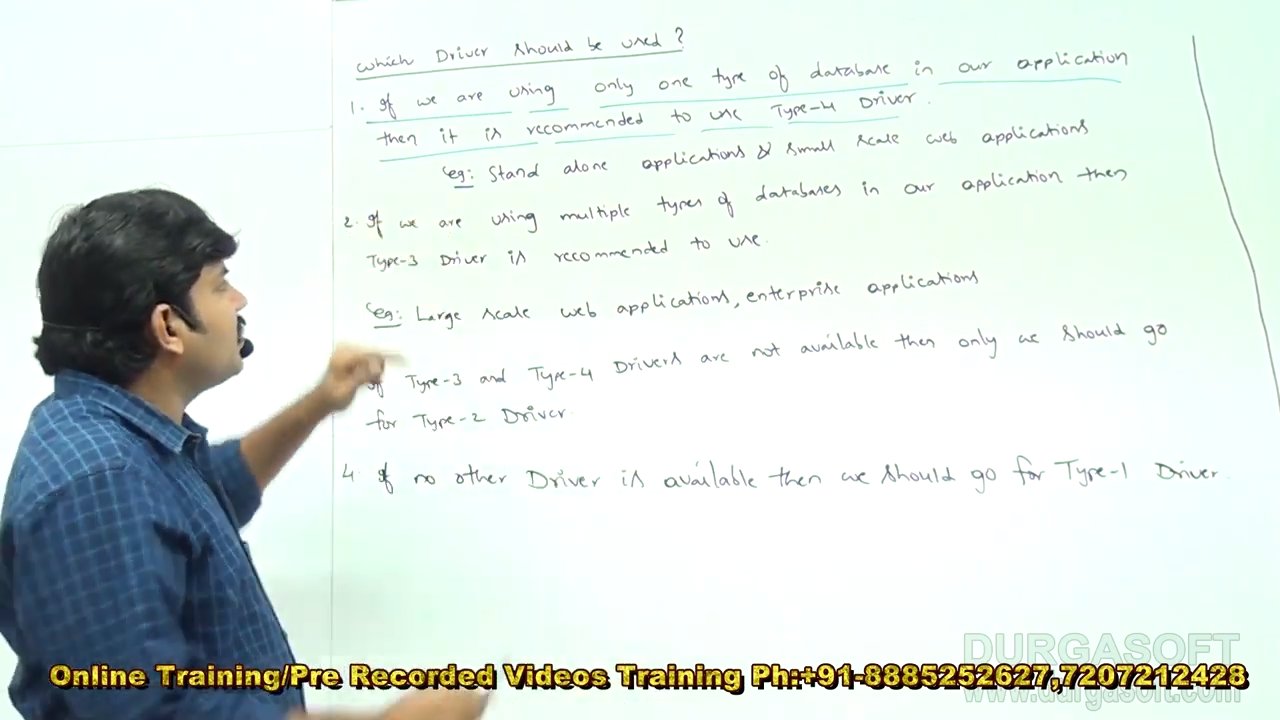 which Driver should be used?
1. If we are using only one type of database in our application
then it is recommended to use Type-4 Driver.
eg: Stand alone applications & small scale web applications
2. If we are using multiple types of databases in our application then
Type-3 Driver is recommended to use.
eg: Large scale web applications, enterprise applications
If Type-3 and Type-4 Drivers are not available then only we should go
for Type-2 Driver.
4. If no other Driver is available then we should go for Type-1 Driver.
DURGASOFT
www.durgasoft.com
Online Training/Pre Recorded Videos Training Ph:+91-8885252627,7207212428